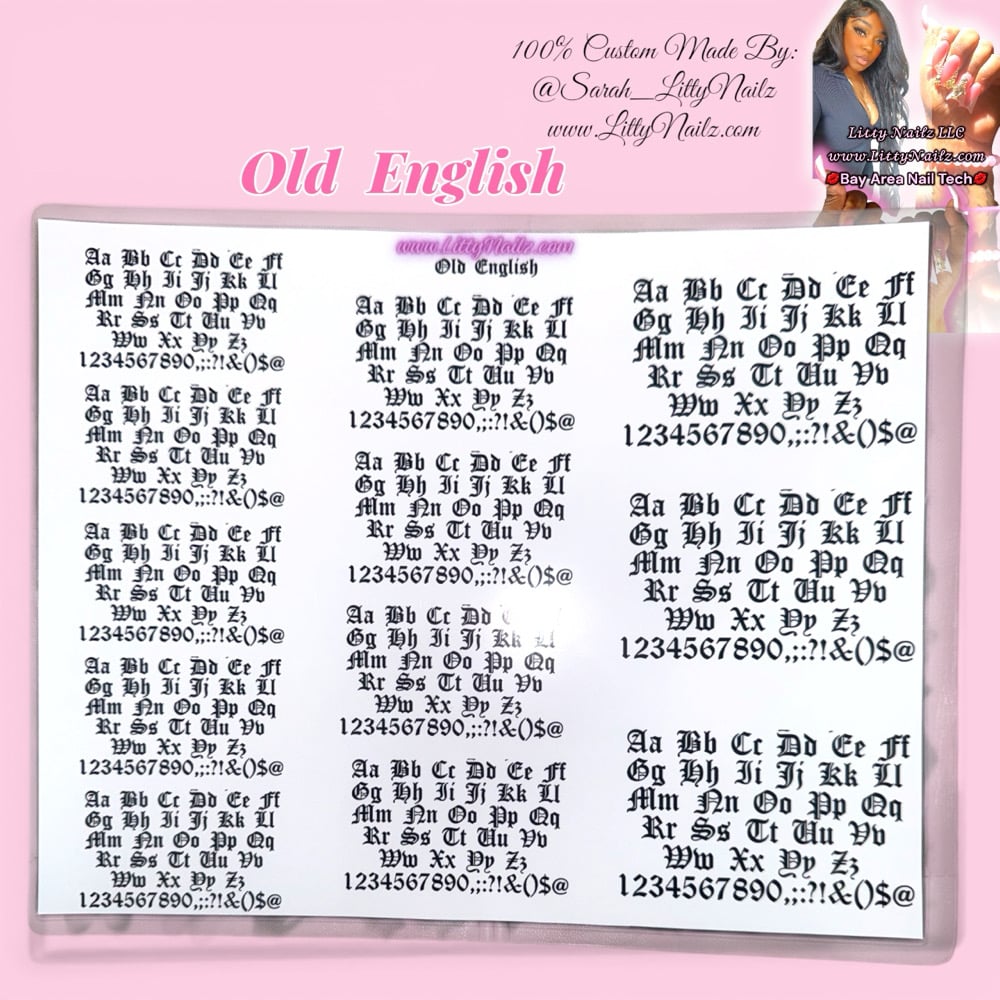 100% Custom Made By:
@Sarah_LittyNailz
www.LittyNailz.com
Litty Nailz LLC
www.LittyNailz.com
💋Bay Area Nail Tech💋
Old English
www.LittyNailz.com
Old English
Aa Bb Cc Dd Ee Ff
Gg Hh Ii Jj Kk Ll
Mm Nn Oo Pp Qq
Rr Ss Tt Uu Vv
Ww Xx Yy Zz
1234567890,;:?!&()$@
Aa Bb Cc Dd Ee Ff
Gg Hh Ii Jj Kk Ll
Mm Nn Oo Pp Qq
Rr Ss Tt Uu Vv
Ww Xx Yy Zz
1234567890,;:?!&()$@
Aa Bb Cc Dd Ee Ff
Gg Hh Ii Jj Kk Ll
Mm Nn Oo Pp Qq
Rr Ss Tt Uu Vv
Ww Xx Yy Zz
1234567890,;:?!&()$@
Aa Bb Cc Dd Ee Ff
Gg Hh Ii Jj Kk Ll
Mm Nn Oo Pp Qq
Rr Ss Tt Uu Vv
Ww Xx Yy Zz
1234567890,;:?!&()$@
Aa Bb Cc Dd Ee Ff
Gg Hh Ii Jj Kk Ll
Mm Nn Oo Pp Qq
Rr Ss Tt Uu Vv
Ww Xx Yy Zz
1234567890,;:?!&()$@
Aa Bb Cc Dd Ee Ff
Gg Hh Ii Jj Kk Ll
Mm Nn Oo Pp Qq
Rr Ss Tt Uu Vv
Ww Xx Yy Zz
1234567890,;:?!&()$@
Aa Bb Cc Dd Ee Ff
Gg Hh Ii Jj Kk Ll
Mm Nn Oo Pp Qq
Rr Ss Tt Uu Vv
Ww Xx Yy Zz
1234567890,;:?!&()$@
Aa Bb Cc Dd
Gg Hh Ii Jj Kk Ll
Mm Nn Oo Pp Qq
Rr Ss Tt Uu Vv
Ww Xx Yy Zz
1234567890,;:?!&()$@
Aa Bb Cc Dd Ee Ff
Gg Hh Ii Jj Kk Ll
Mm Nn Oo Pp Qq
Rr Ss Tt Uu Vv
Ww Xx Yy Zz
1234567890,;:?!&()$@
Aa Bb Cc Dd Ee Ff
Gg Hh Ii Jj Kk Ll
Mm Nn Oo Pp Qq
Rr Ss Tt Uu Vv
Ww Xx Yy Zz
1234567890,;:?!&()$@
Aa Bb Cc Dd Ee Ff
Gg Hh Ii Jj Kk Ll
Mm Nn Oo Pp Qq
Rr Ss Tt Uu Vv
Ww Xx Yy Zz
1234567890,;:?!&()$@
Aa Bb Cc Dd Ee Ff
Gg Hh Ii Jj Kk Ll
Mm Nn Oo Pp Qq
Rr Ss Tt Uu Vv
Ww Xx Yy Zz
1234567890,;:?!&()$@